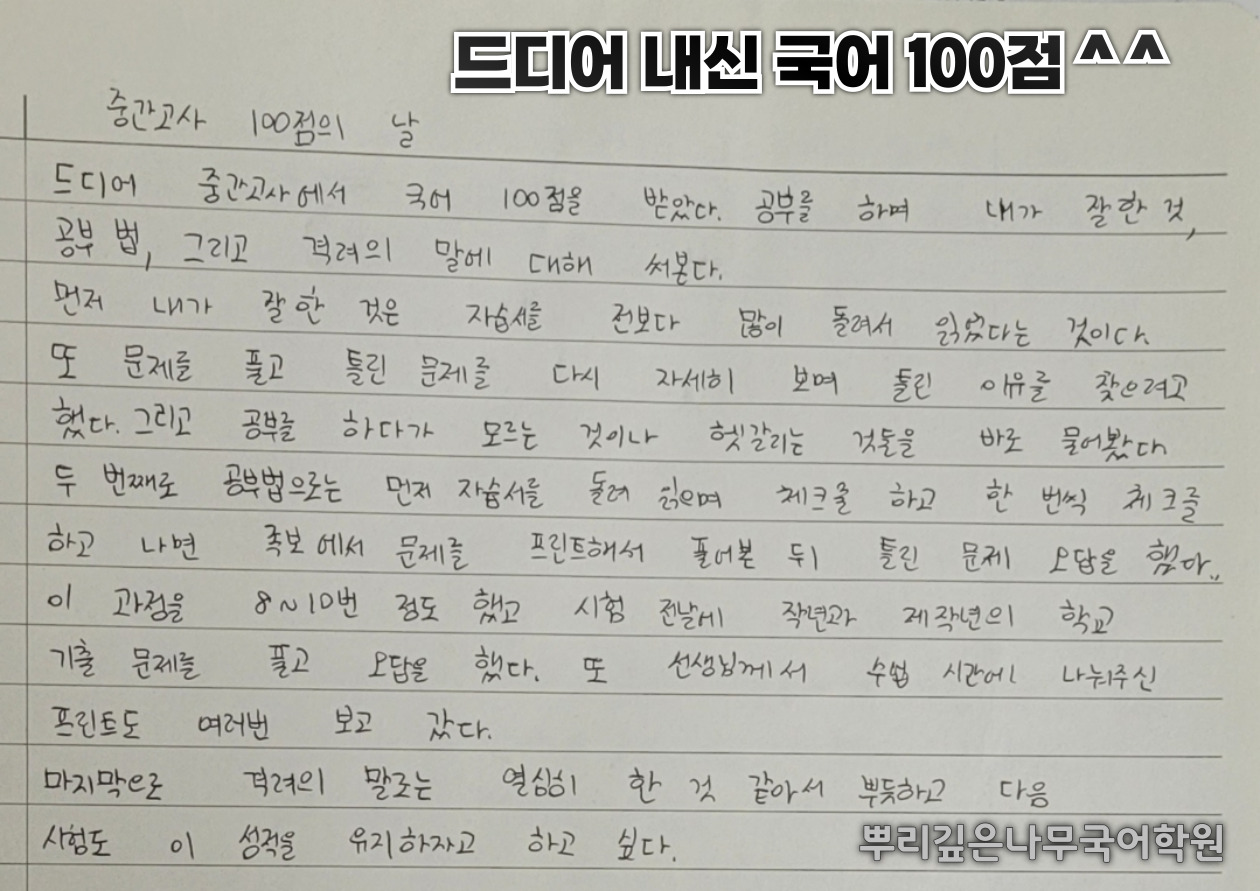 드디어 내신 국어 100점 ^^
중간고사 100점의 날
드디어 중간고사에서 국어 100점을 받았다. 공부를 하며 내가 잘한 것,
공부 법, 그리고 격려의 말에 대해 써본다.
먼저 내가 잘 한 것은 자습서를 전보다 많이 돌려서 읽었다는 것이다.
또 문제를 풀고 틀린 문제를 다시 자세히 보며 틀린 이유를 찾으려고
했다. 그리고 공부를 하다가 모르는 것이나 헷갈리는 것들을 바로 물어봤다
두 번째로 공부법으로는 먼저 자습서를 돌려 읽으며 체크를 하고 한 번씩 체크를
하고 나면 족보에서 문제를 프린트해서 풀어본 뒤 틀린 문제 오답을 했다.
이 과정을 8~10번 정도 했고 시험 전날에 작년과 제작년의 학교
기출 문제를 풀고 오답을 했다. 또 선생님께서 수업 시간에 나눠주신
프린트도 여러번 보고 갔다.
마지막으로 격려의 말로는 열심히 한 것 같아서 뿌듯하고 다음
시험도 이 성적을 유지하자고 하고 싶다.
뿌리깊은나무국어학원